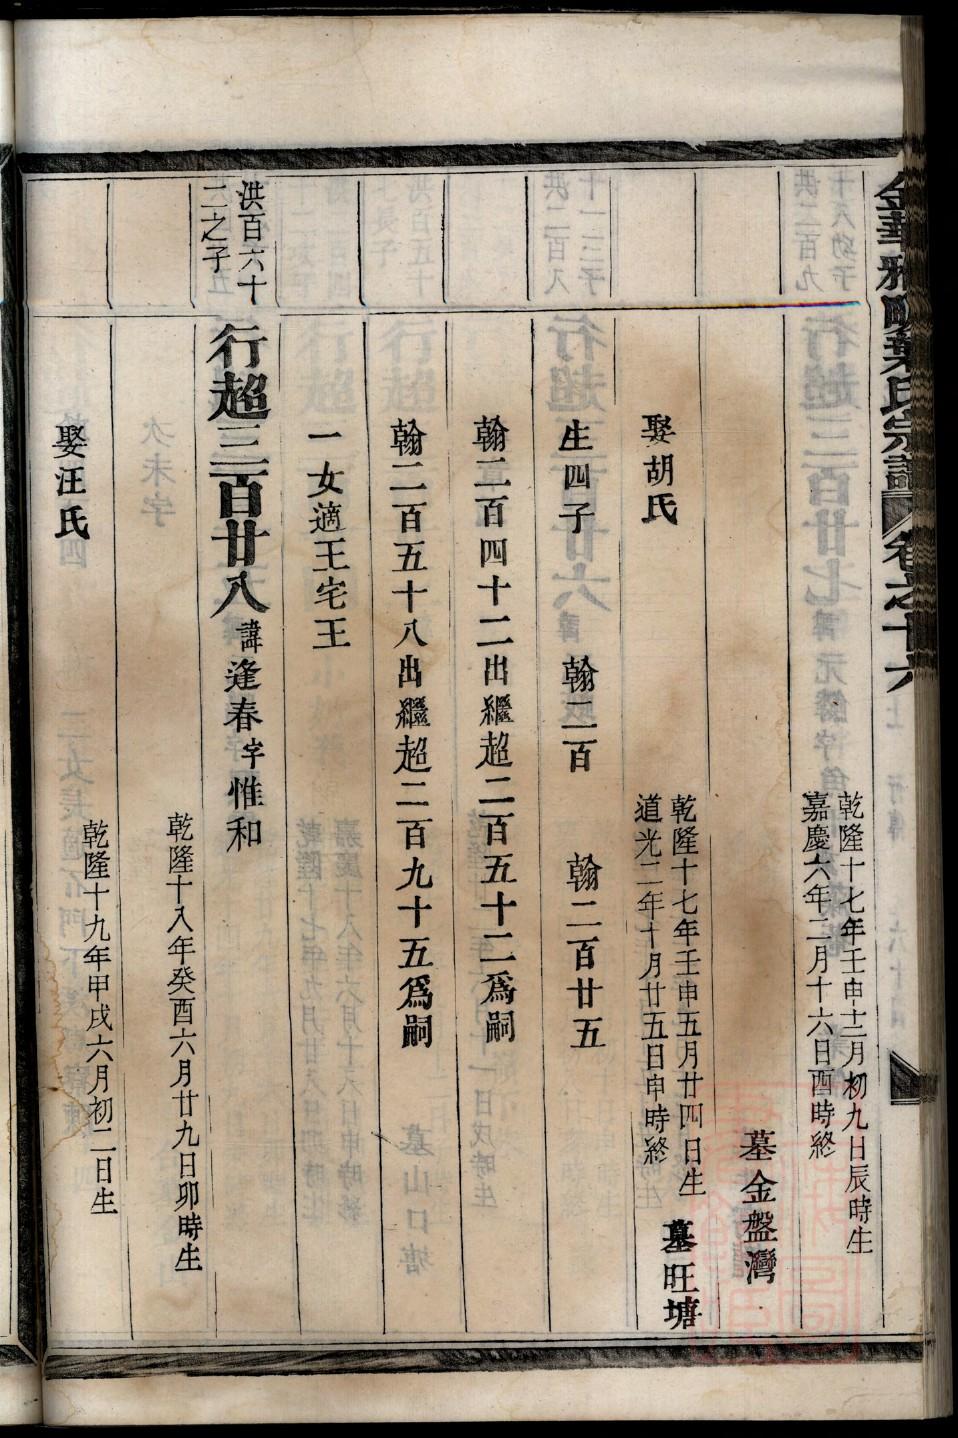 金華雅畈葉氏宗譜 卷之十六
乾隆十七年壬申十二月初九日辰時生
嘉慶六年二月十六日酉時終
墓金盤灣
娶胡氏
乾隆十七年壬申五月廿四日生
道光二年十月廿五日申時終
墓旺塘
生四子 翰二百 翰二百廿五
翰二百四十二出繼超二百五十二爲嗣
翰二百五十八出繼超二百九十五爲嗣
一女適王宅王
洪百六十
二之子
行超三百廿八諱逢春字惟和
乾隆十八年癸酉六月廿九日卯時生
娶汪氏
乾隆十九年甲戌六月初二日生